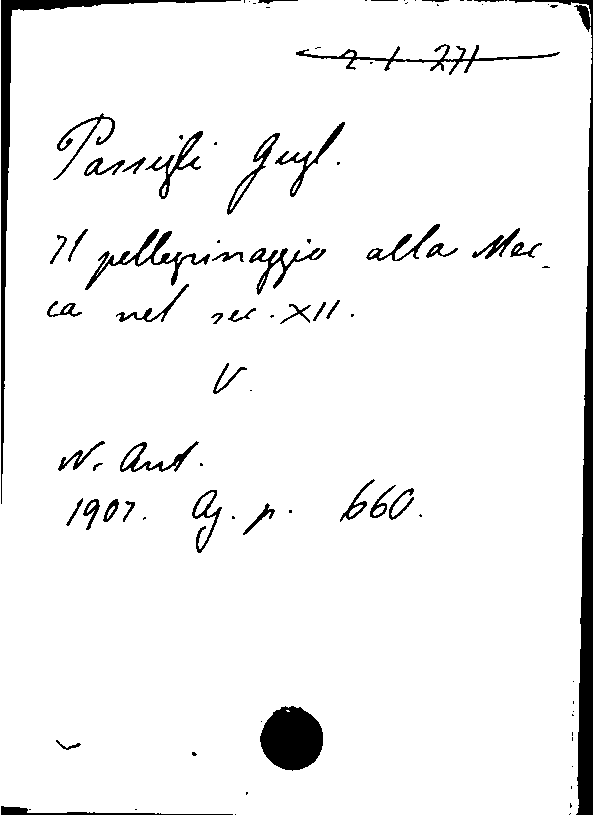 2.1.271
Passigli Gugl.
Il pellegrinaggio alla Mec-
ca nel sec. XII.
V.
N. Ant.
1907. Ag. p. 660.